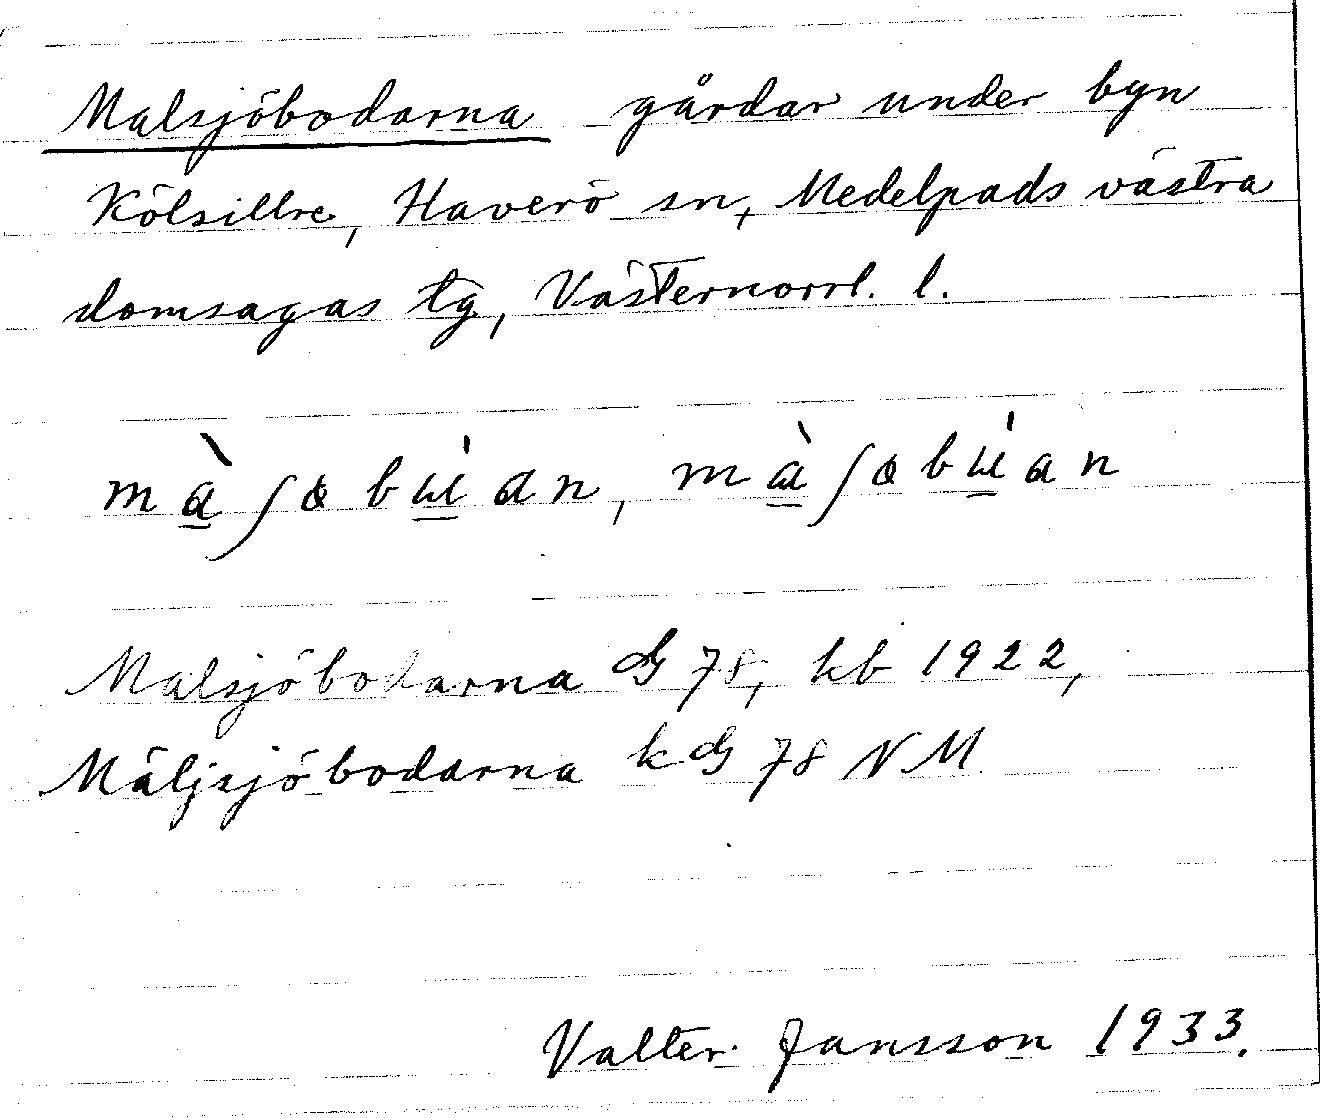 Malsjöbodarna gårdar under byn
Kölsillre, Haverö sn, Medelpads västra
domsagas tg, Västernorrl. l.
Malsjöbodarna 78, kb 1922,
Mäljsjöbodarna k 78 NM
Valter Jansson 1933.